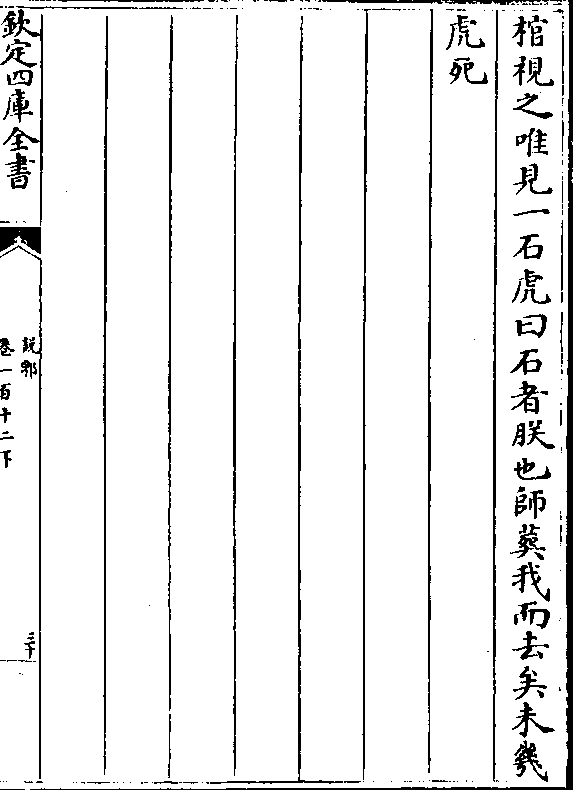 棺視之唯見一石虎曰石者朕也師葬我而去矣未幾
虎死
欽定四庫全書
說郛
卷一百十二下
三十